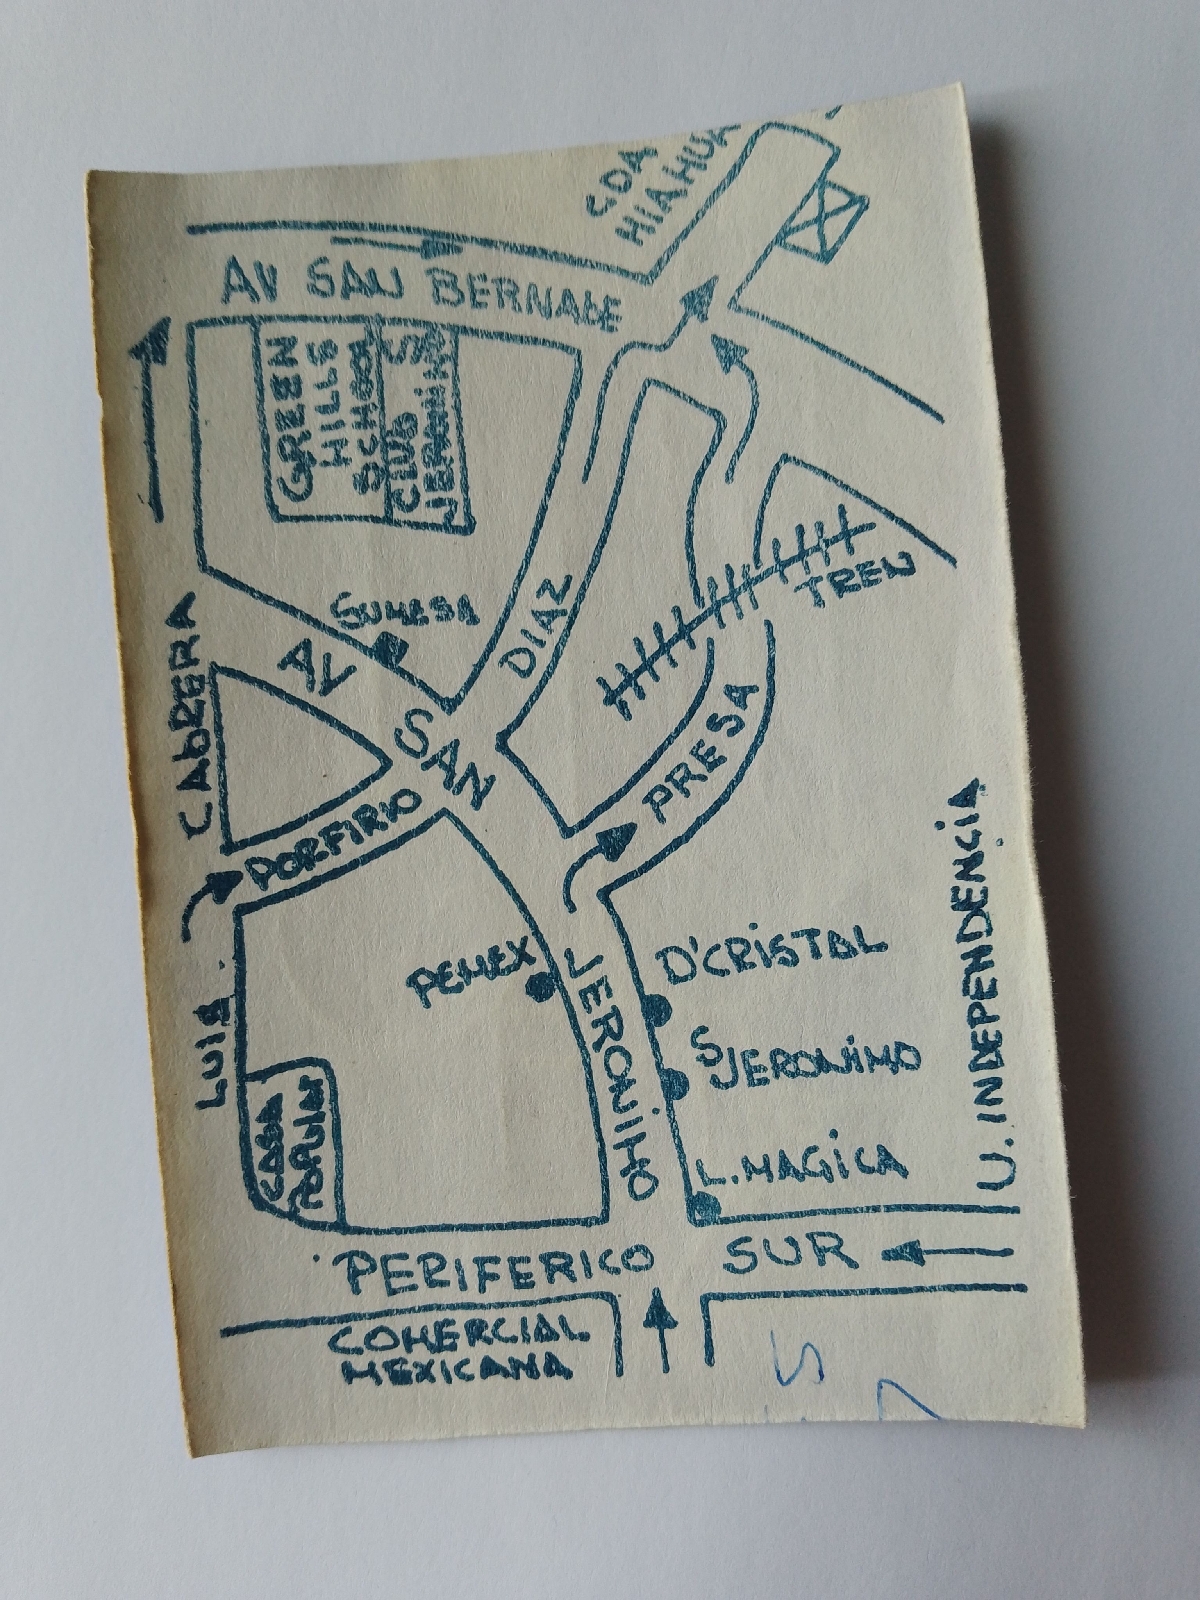 CDA
HIAHUA
AV SAN BERNABE
GREEN
HILLS
SCHOOL
CLUB S
JERONIMO
SUMESA
TREN
CABRERA
AV
SAN
DIAZ
PRESA
PORFIRIO
U. INDEPENDENCIA
PEMEX
JERONIMO
D'CRISTAL
S JERONIMO
L. MAGICA
LUIS
CASA
POPULAR
PERIFERICO SUR
COMERCIAL
MEXICANA